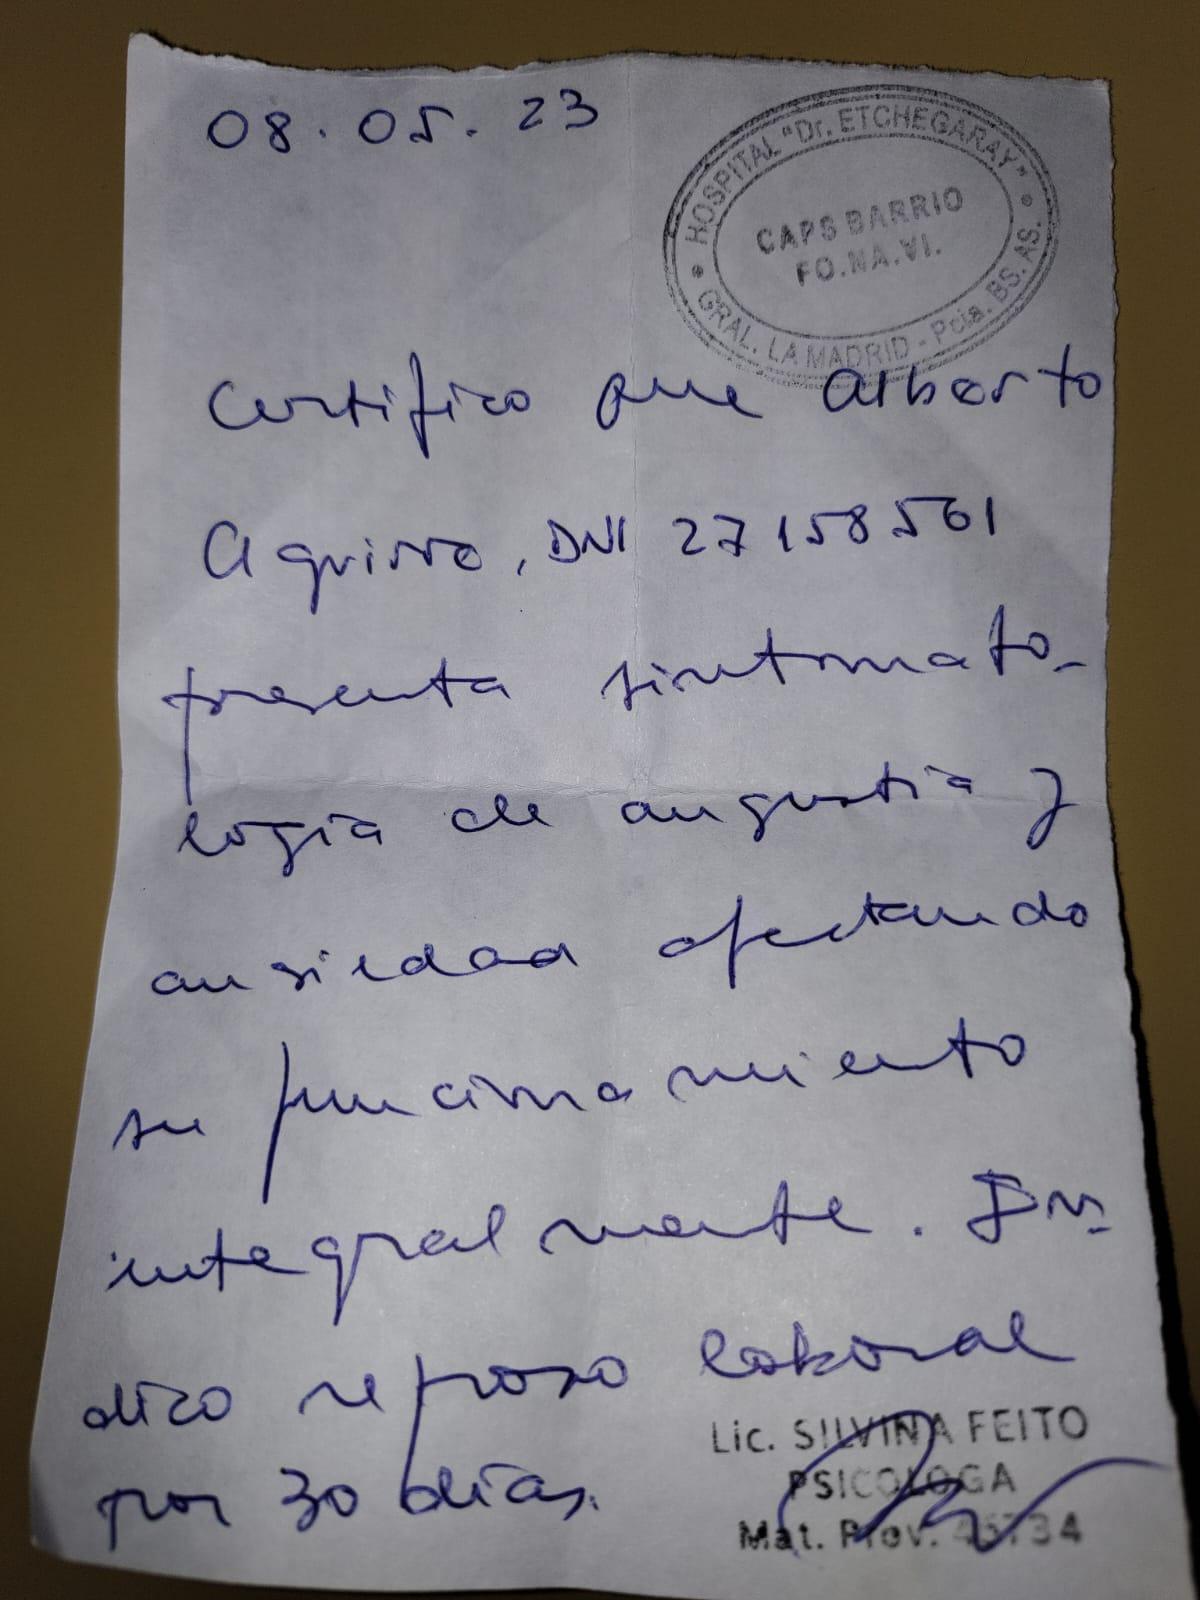 08.05.23
HOSPITAL "Dr. ETCHEGARAY"
CAPS BARRIO
FO.NA.VI.
GRAL. LA MADRID - Pcia. BS. AS.
Certifico que Alberto
Aguirre, DNI 27158561
presenta sintomato-
logía de angustia y
ansiedad afectando
su funcionamiento
integralmente. In-
dico reposo laboral
por 30 días.
Lic. SILVINA FEITO
PSICOLOGA
Mat. Prov.